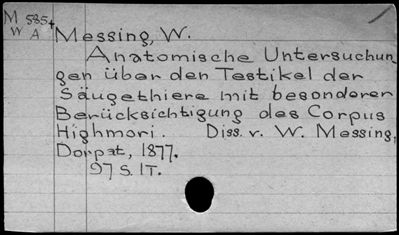 M 585t
W A
Messing, W.
Anatomische Untersuchun
gen über den Testikel der
Säugethiere mit besonderer
Berücksichtigung des Corpus
Highmori. Diss. v. W. Messing,
Dorpat, 1877.
97 S. 1T.